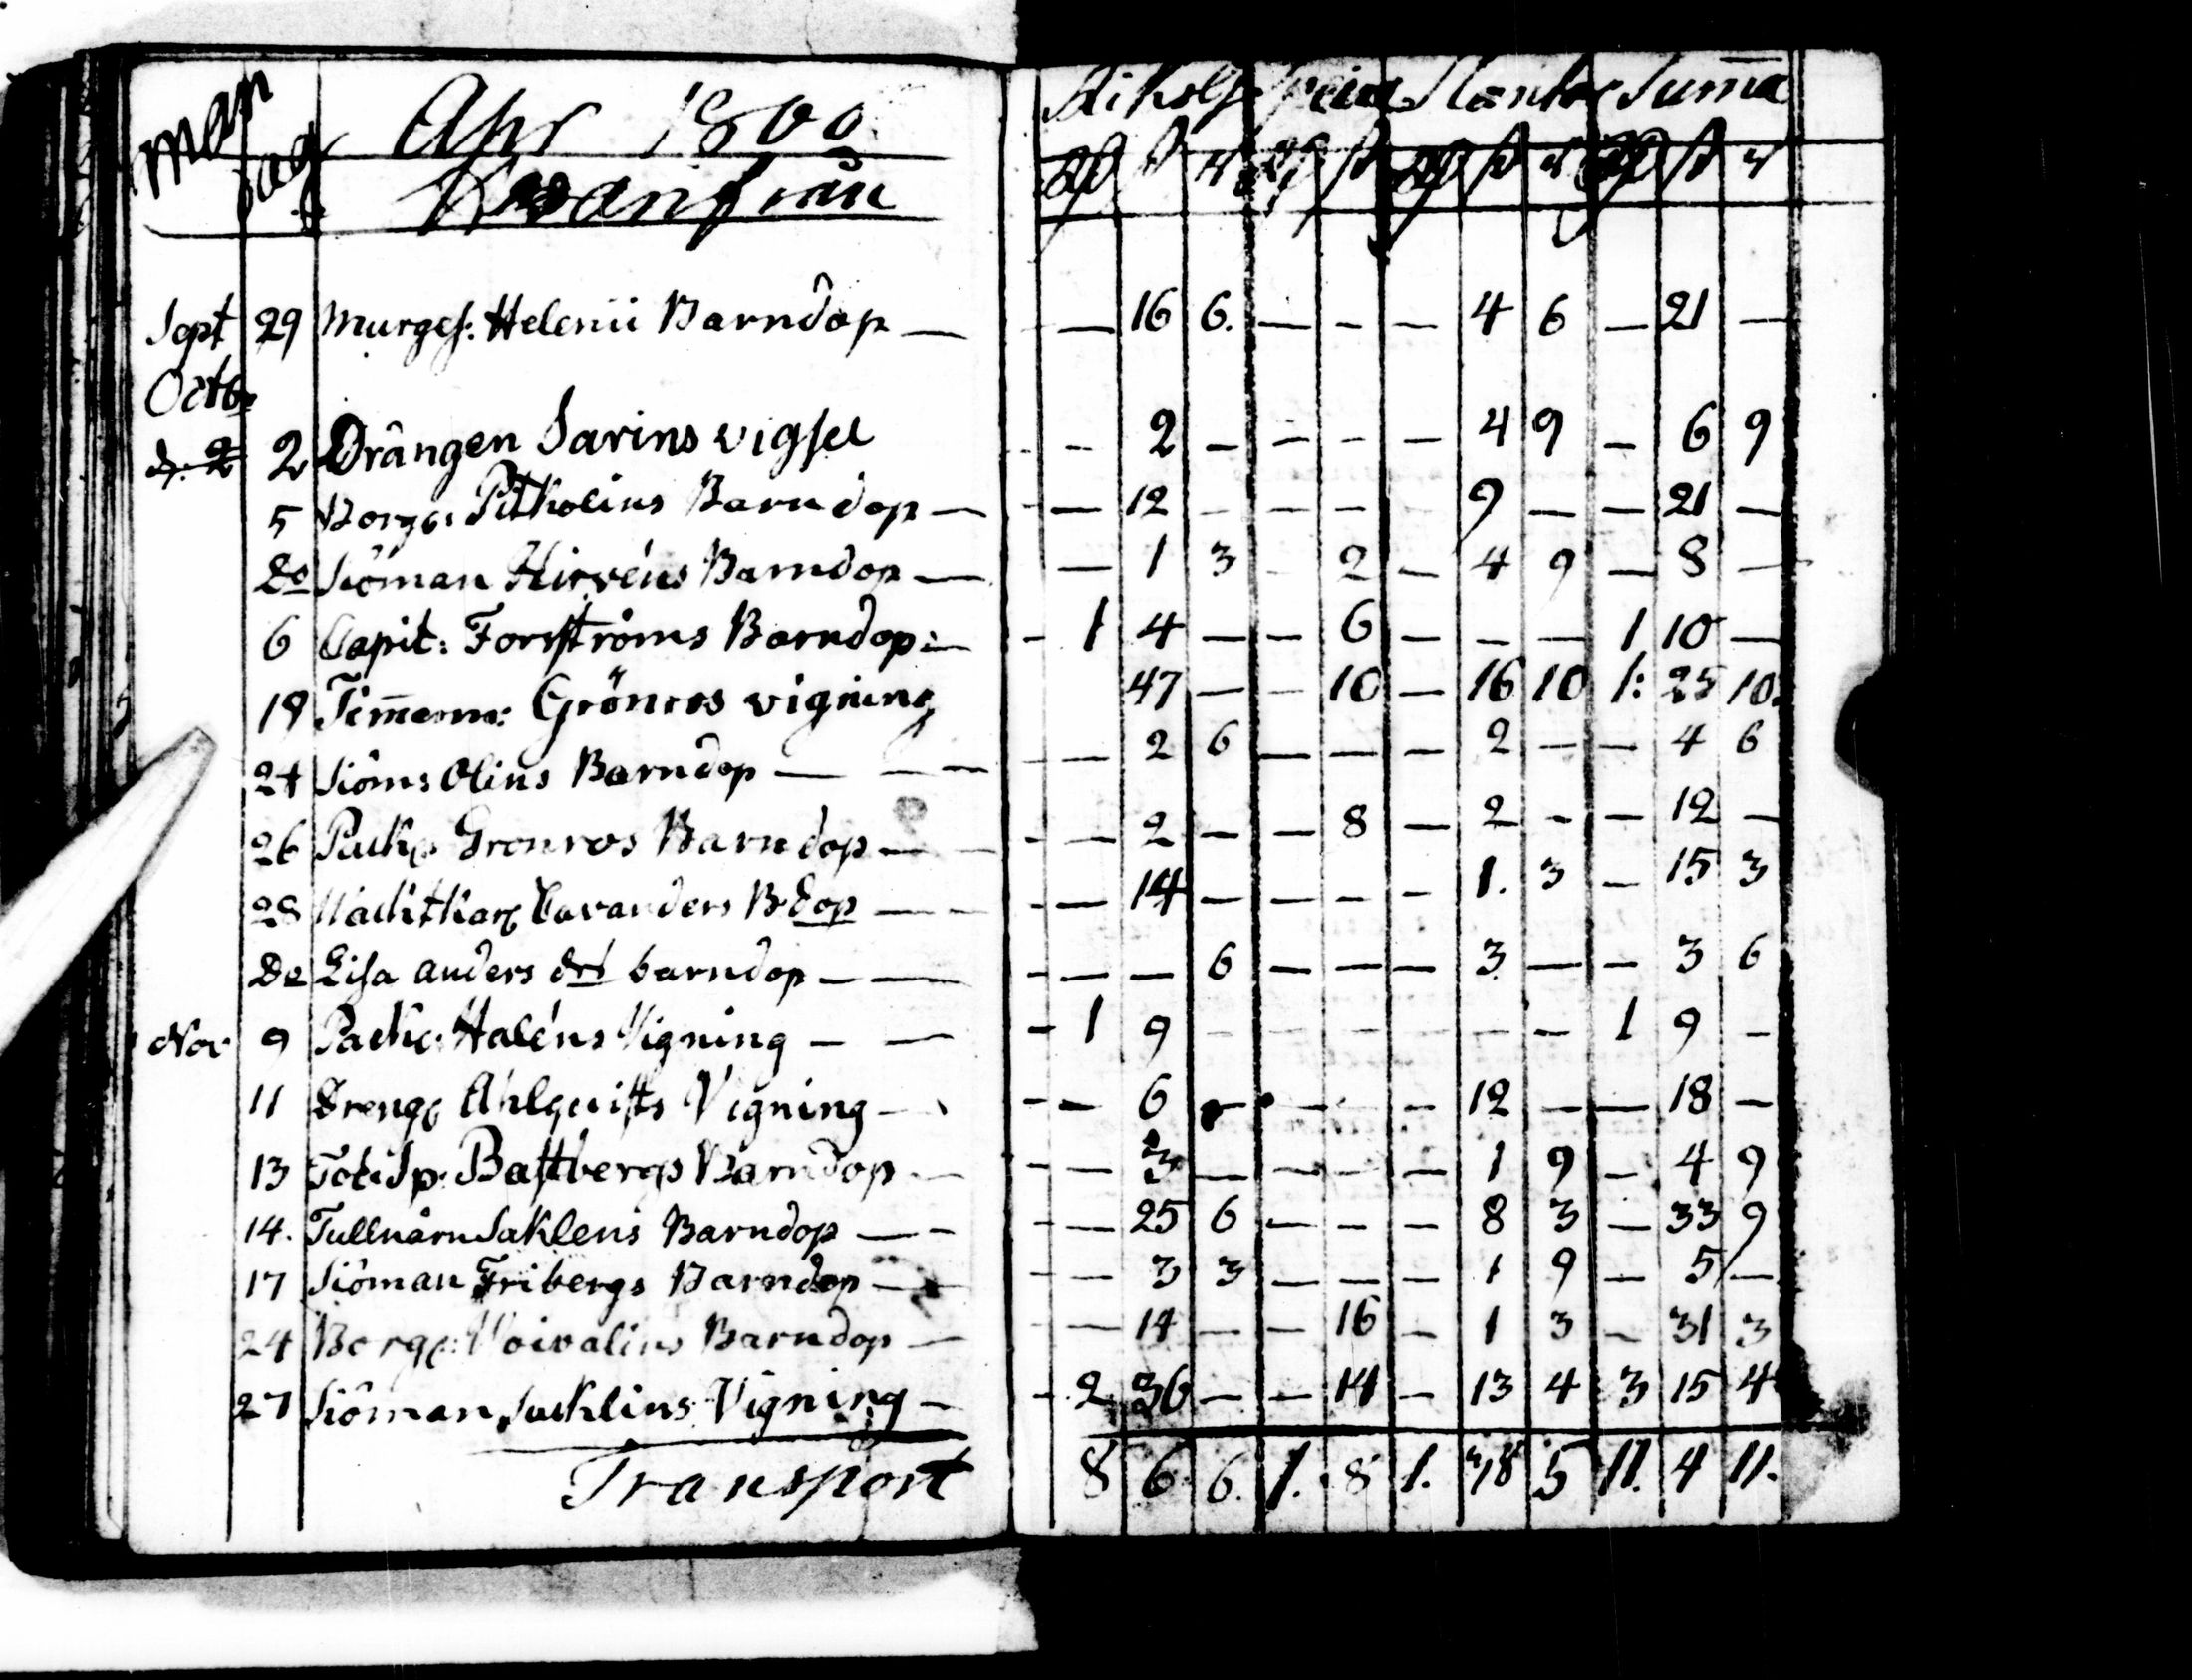 Mån dag Åhr 1800 Riksg Speci Slantar Suma
Hvarifrån
Sept 29 Murges: Helenii Barndop — — 16 6. — - — 4 6 — 21 —
Octb:
d. 2 2 Drängen Sarins vigsel - 2 - - - — 4 9 - 6 9
5 Borg: Pitkolins Barndop — — 12 - - - - 9 — — 21 —
Do Siöman Hirvéns Barndop — — 1 3 - 2 — 4 9 — 8 —
6 Capit: Forsströms Barndop: — - 1 4 — — 6 — - — 1 10 —
19 Timerm: Grönros vigning 47 — - 10 — 16 10 1: 25 10.
24 Siöms Olins Barndop — — — 2 6 — — — 2 — — 4 6
26 Packs Gronros Barndop — — 2 — — 8 — 2 - — 12 —
28 Cavanders Bdop — — 14 — - - - 1. 3 — 15 3
Do Lisa anders dri barndop — — — — 6 — — — 3 — — 3 6
Nov 9 Packs: Haléns Vigning — — - 1 9 - - - - - — 1 9 -
11 Drengs Ahlquists Vigning — - — 6 - - - - 12 — — 18 —
13 Bastbergs Barndop — - — 3 — - - — 1 9 - 4 9
14. Tullnärn Saklens Barndop — - - — 25 6 — - - - 8 3 — 33 9
17 Siöman Fribergs Barndop — - — 3 3 — — — 1 9 — 5 —
24 Borgs: Voivalins Barndop — — 14 — - 16 - 1 3 - 31 3
27 Siöman Sacklins Vigning — - 2 36 — - 14 — 13 4 3 15 4
Transport 8 6 6. 1. 8 1. 38 5 11. 4 11.